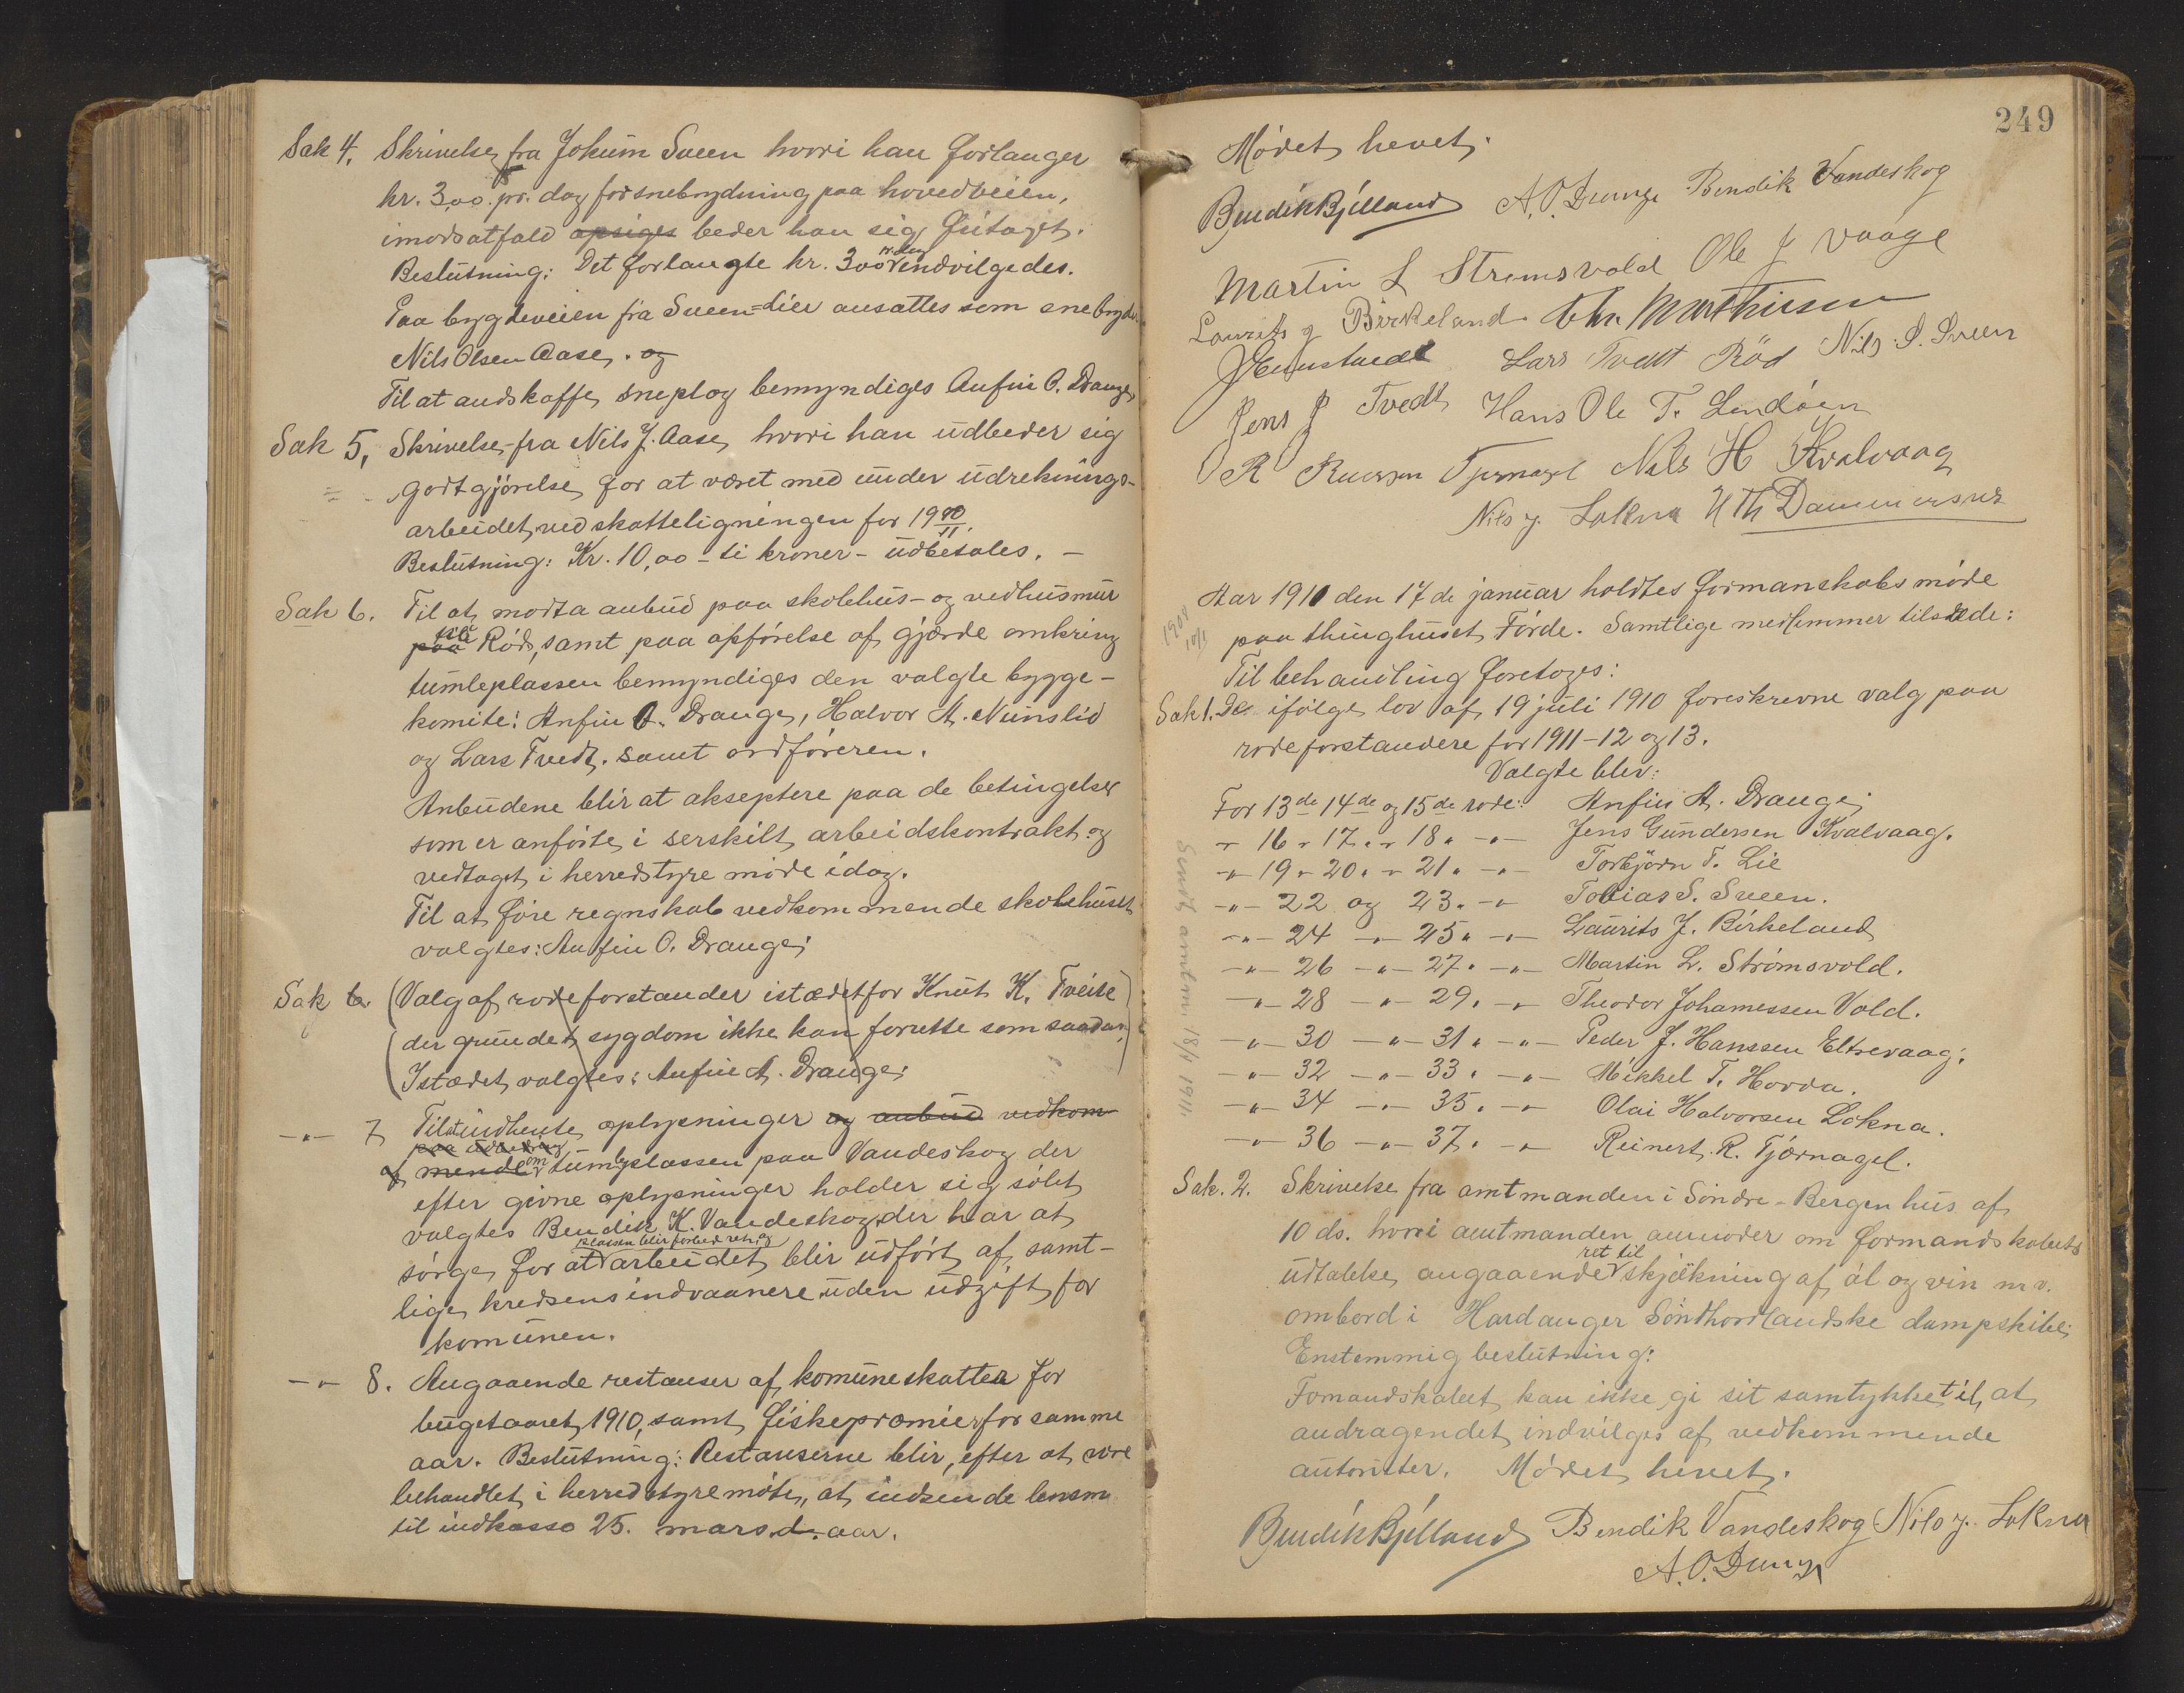 Sak 4. Skrivelse fra Jokum Sveen hvori han forlanger
kr. 3,00 pr. dag for snebrydning paa hovedveien,
imodsatfald opsiges beder han sig fritaget.
Beslutning: Det forlangte kr. 3,00 pr. dag indvilgedes.
Paa bygdeveien fra Sveen-Lier ansattes som snebryder
Nils Olsen Aase. og
Til at andskaffe sneplog bemyndiges Anfin O. Drange
Sak 5, Skrivelse fra Nils J. Aase, hvori han udbeder sig
godtgjørelse for at været med under udreknings-
arbeidet ved skatteligningen for 1910/11.
Beslutning: Kr. 10,00 - ti kroner - udbetales. -
Sak 6. Til at modta anbud paa skolehus- og vedhusmur
paa till Rød, samt paa opførelse af gjærde omkring
tumleplassen bemyndiges den valgte bygge-
komite: Anfin O. Drange, Halvor A. Ninslid
og Lars Tvedt. samt ordføreren.
Anbudene blir at akseptere paa de betingelser
som er anførte i serskilt arbeidskontrakt og
vedtaget i herredstyre møde idag.
Til at føre regnskab vedkommende skolehuset
valgtes: Anfin O. Drange;
Sak 6. (Valg af rodeforstander istædet for Knut K. Tveite
(der grundet sygdom ikke kan forrette som saadan,)
(Istædet valgtes: Anfin A. Drange;
-"- 7 Til at indhente oplysninger og anbud vedkom-
paa udbedring
af mende om tumleplassen paa Vandeskog der
efter givne oplysninger holder sig sølet
valgtes Bendik K. Vandeskog, der har at
plassen blir forbedret, og
sørge for at arbeidet blir udført af samt-
lige kredsens indvaanere uden udgift for
komunen.
-"- 8. Angaaende restanser af komuneskatter for
bugetaaret 1910, samt fiskepræmier for samme
aar. Beslutning: Restanserne blir, efter at være
behandlet i herredstyremøte, at indsende lensm
til indkasso 25. mars d. aar.
249
Mødet hevet.
Bendik Bjelland A. O. Drange Bendik Vandeskog
Martin L Strømsvold Ole J Vaage
Laurits J Birkeland Chr. Mathisen
Lars Tvedt Rød Nils S. Sveen
Jens J Tvedt Hans Ole T. Lindøen
R Tjernagel Nils H Kvalvaag
Nils J. Lokna H Th Dammersnes
Aar 1911 den 17de januar holdtes formanskabsmøde
paa thinghuset Førde. Samtlige medlemmer tilstede:
Til behandling foretoges:
Sak 1. De ifølge lov af 19 juli 1910 foreskrevne valg paa
rodeforstandere for 1911-12 og 13.
Valgte blev:
For 13de 14de og 15de rode: Anfin A. Drange;
-"- 16 -"- 17. -"- 18. -"- Jens Gundersen Kvalvaag.
-"- 19 -"- 20. -"- 21. -"- Torbjørn T. Lie
-"- 22 og 23. -"- Tobias S. Sveen.
-"- 24 -"- 25. -"- Laurits J. Birkeland
-"- 26 -"- 27. -"- Martin L. Strømsvold.
-"- 28 -"- 29. -"- Theodor Johannessen Vold.
-"- 30 -"- 31. -"- Peder J. Hanssen Eltrevaag;
-"- 32 -"- 33. -"- Mikkel T. Hovda.
-"- 34 -"- 35. -"- Olai Halvorsen Lokna.
-"- 36 -"- 37. -"- Reinert R. Tjørnagel.
Sendt amtm. 18/1 1911.
Sak. 2. Skrivelse fra amtmanden i Søndre-Bergenhus af
10 ds. hvori amtmanden anmoder om formandskabets
udtalelse angaaende ret til skjækning af øl og vin m.v.
ombord i Hardanger Søndhordlandske dampskibe;
Enstemmig beslutning:
Fomandskabet kan ikke gi sit samtykke til, at
andragendet indvilges af vedkommende
autoriteter. Mødet hevet.
Bendik Bjelland Bendik Vandeskog Nils J. Lokna
A. O. Drange